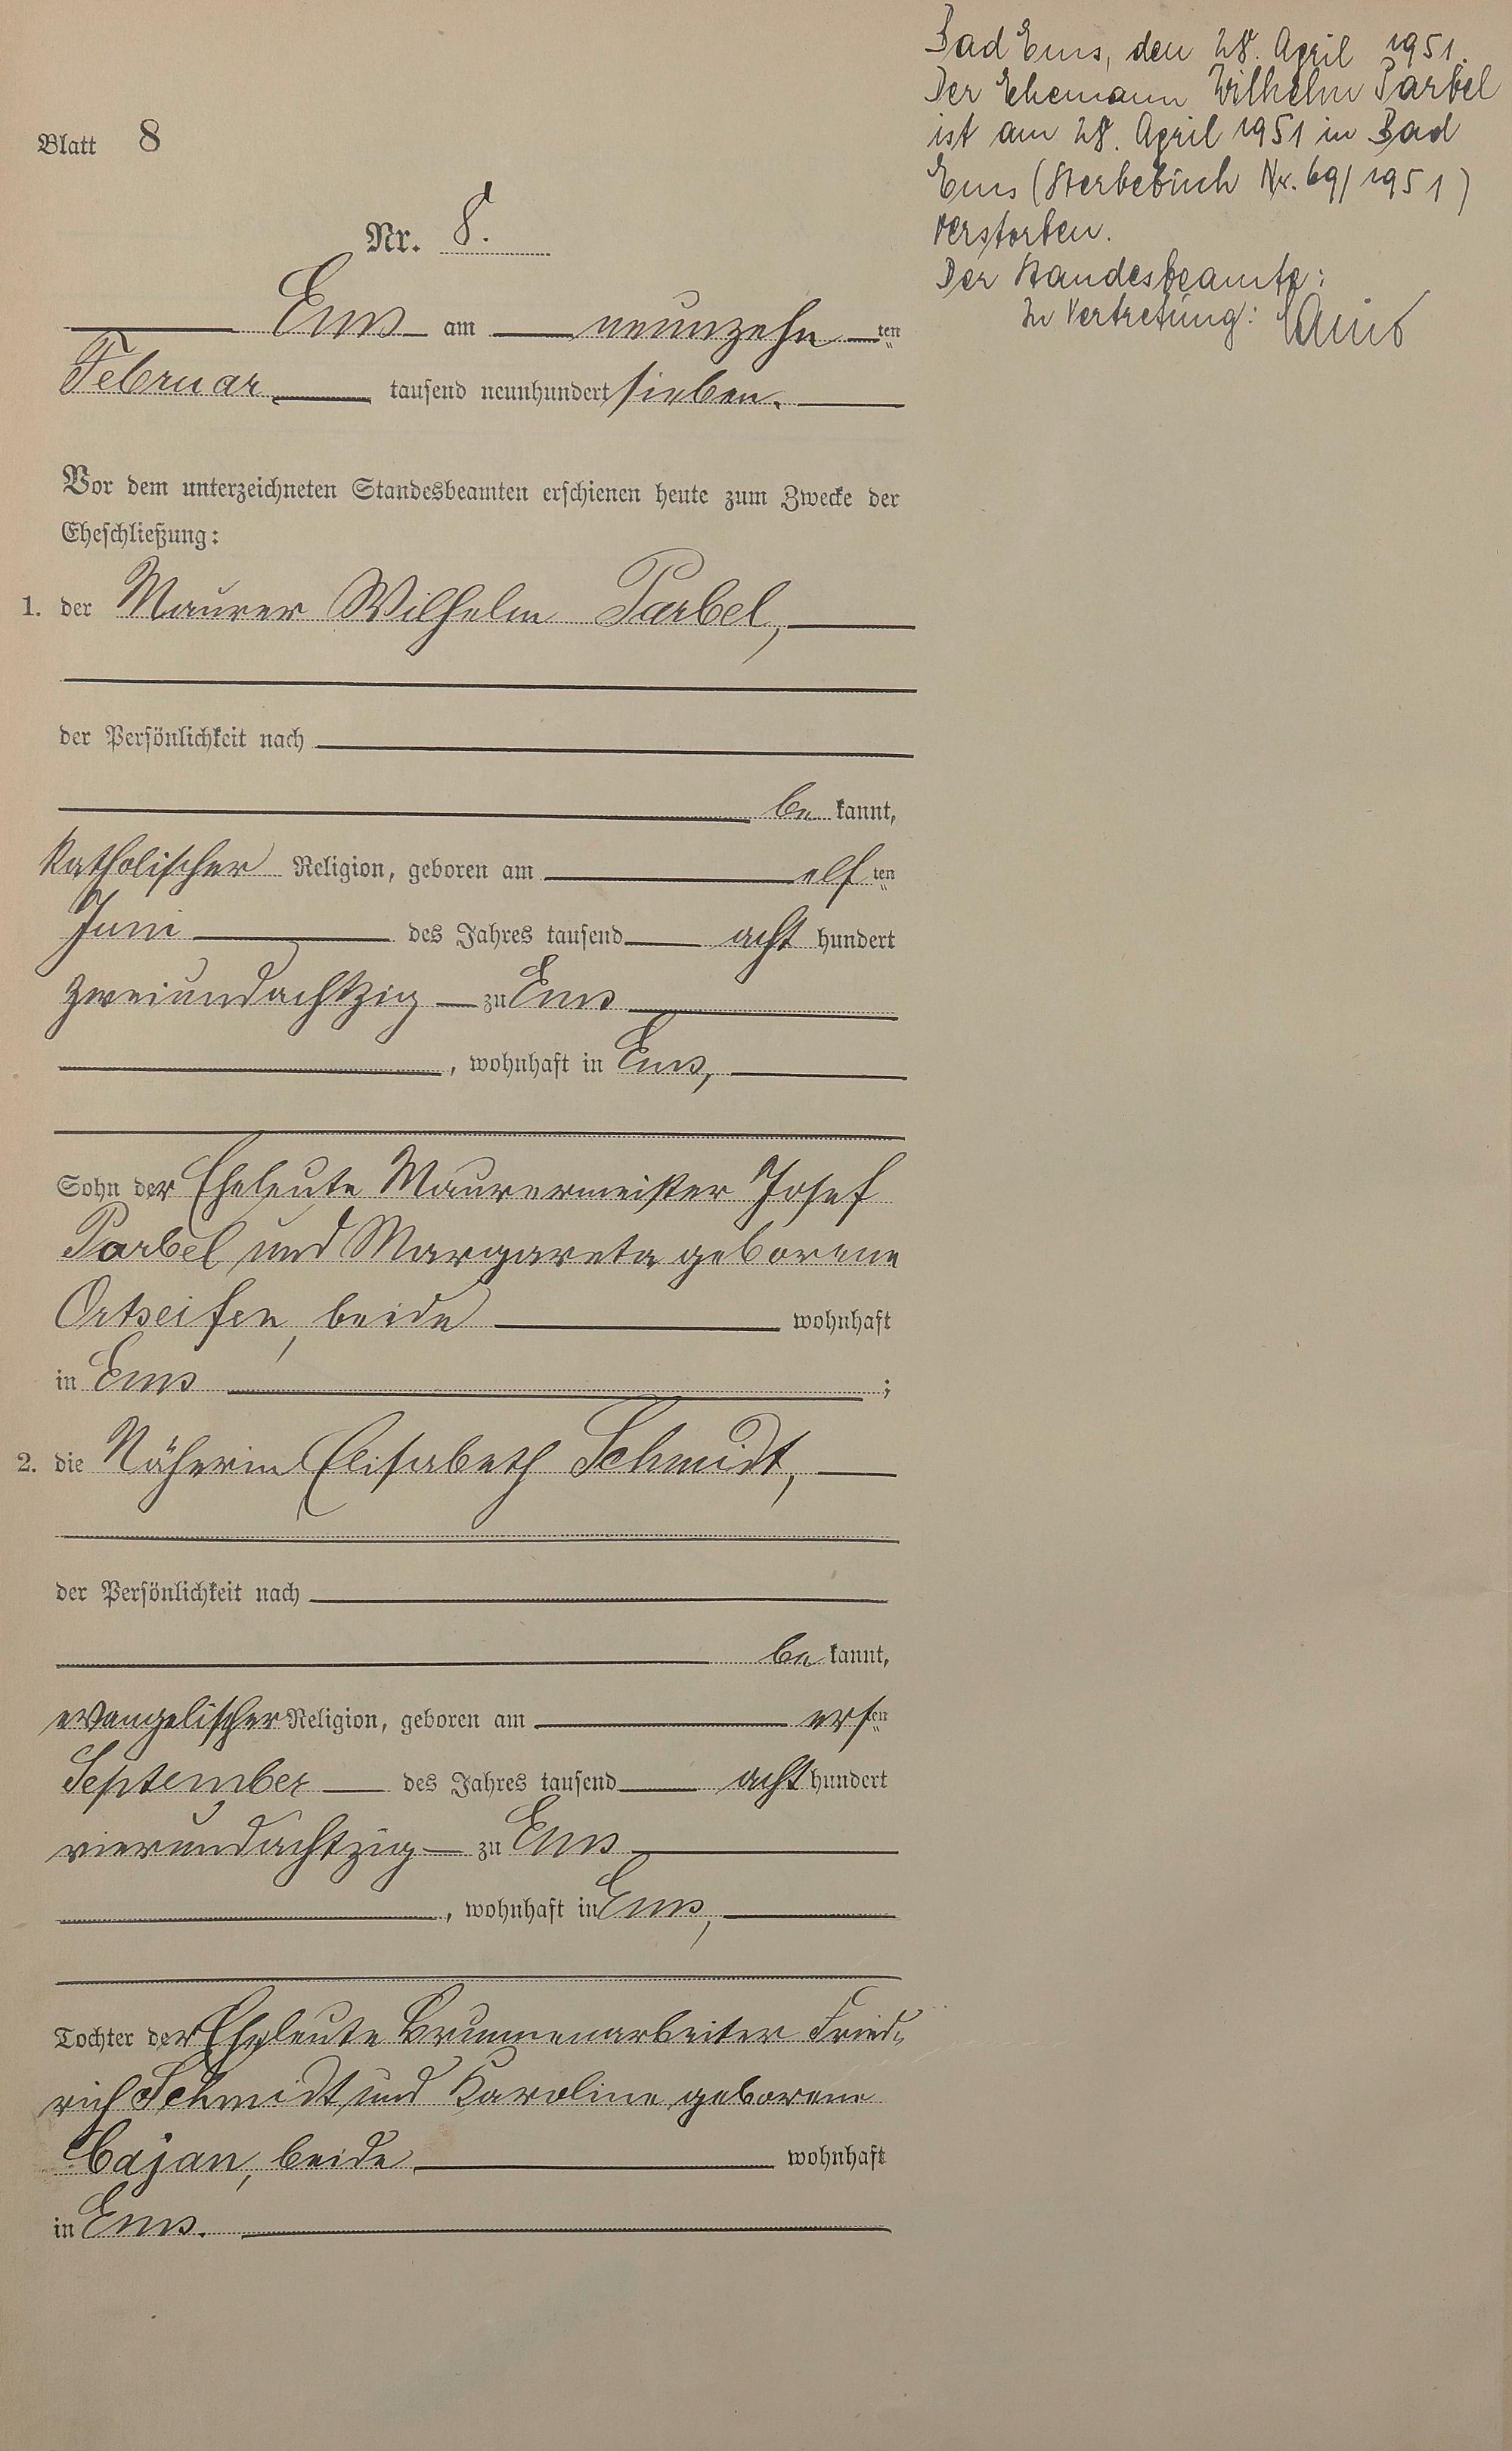 Blatt 8
Nr. 8.
Ems am neunzehn ten
Februar tausend neunhundert sieben.
Vor dem unterzeichneten Standesbeamten erschienen heute zum Zwecke der
Eheschließung:
1. der Maurer Wilhelm Parbel,
der Persönlichkeit nach
be kannt,
katholischer Religion, geboren am elf ten
Juni des Jahres tausend acht hundert
zweiundachtzig zu Ems
, wohnhaft in Ems,
Sohn der Eheleute Maurermeister Josef
Parbel und Margareta geborene
Ortseifen, beide wohnhaft
in Ems ;
2. die Näherin Elisabeth Schmidt,
der Persönlichkeit nach
be kannt,
evangelischer Religion, geboren am ersten
September des Jahres tausend acht hundert
vierundachtzig zu Ems
, wohnhaft in Ems,
Tochter der Eheleute Brunnenarbeiter Fried-
rich Schmidt und Karoline geborene
Cajan, beide wohnhaft
in Ems.
Bad Ems, den 28. April 1951.
Der Ehemann Wilhelm Parbel
ist am 28. April 1951 in Bad
Ems (Sterbebuch Nr. 69/1951)
verstorben.
Der Standesbeamte:
In Vertretung: